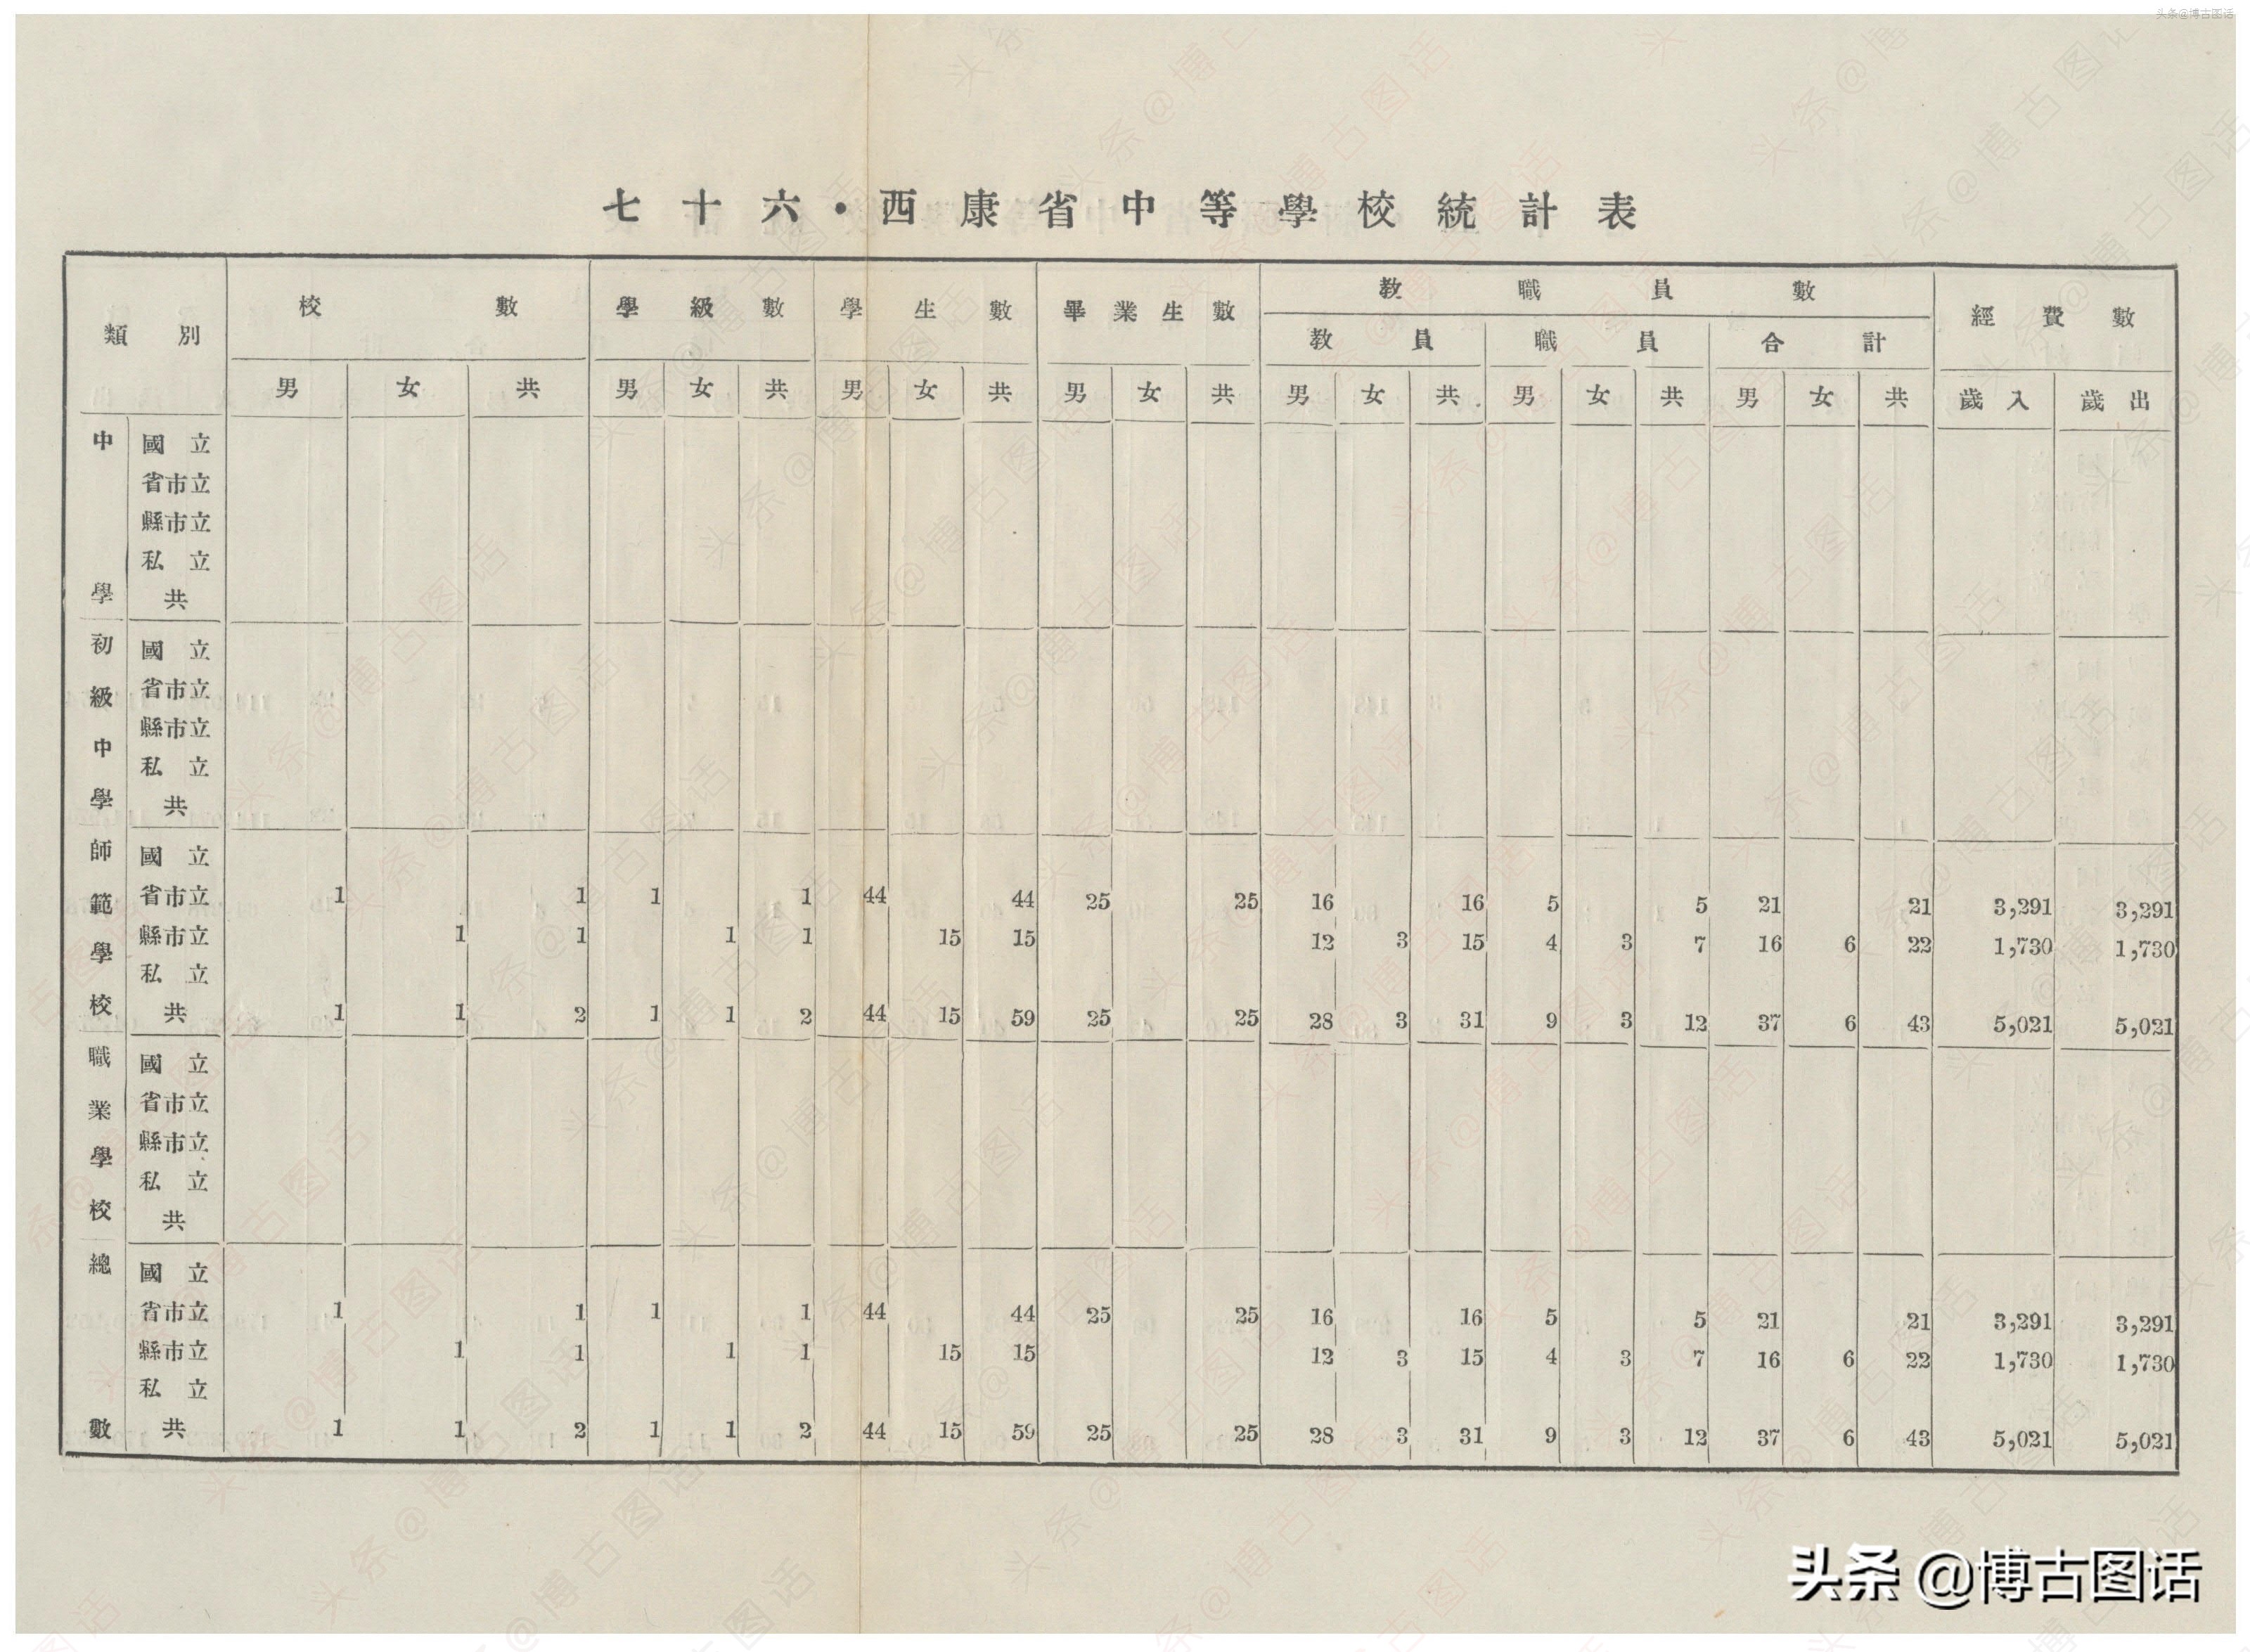 头条@博古图话
七十六·西康省中等學校統計表
類別 校數 學級數 學生數 畢業生數 教職員數 經費數
教員 職員 合計
男 女 共 男 女 共 男 女 共 男 女 共 男 女 共 男 女 共 男 女 共 歲入 歲出
中學 國立
省市立
縣市立
私立
共
初級中學 國立
省市立
縣市立
私立
共
師範學校 國立
省市立 1 1 1 1 44 44 25 25 16 16 5 5 21 21 3,291 3,291
縣市立 1 1 1 1 15 15 12 3 15 4 3 7 16 6 22 1,730 1,730
私立
共 1 1 2 1 1 2 44 15 59 25 25 28 3 31 9 3 12 37 6 43 5,021 5,021
職業學校 國立
省市立
縣市立
私立
共
總數 國立
省市立 1 1 1 1 44 44 25 25 16 16 5 5 21 21 3,291 3,291
縣市立 1 1 1 1 15 15 12 3 15 4 3 7 16 6 22 1,730 1,730
私立
共 1 1 2 1 1 2 44 15 59 25 25 28 3 31 9 3 12 37 6 43 5,021 5,021
头条 @博古图话